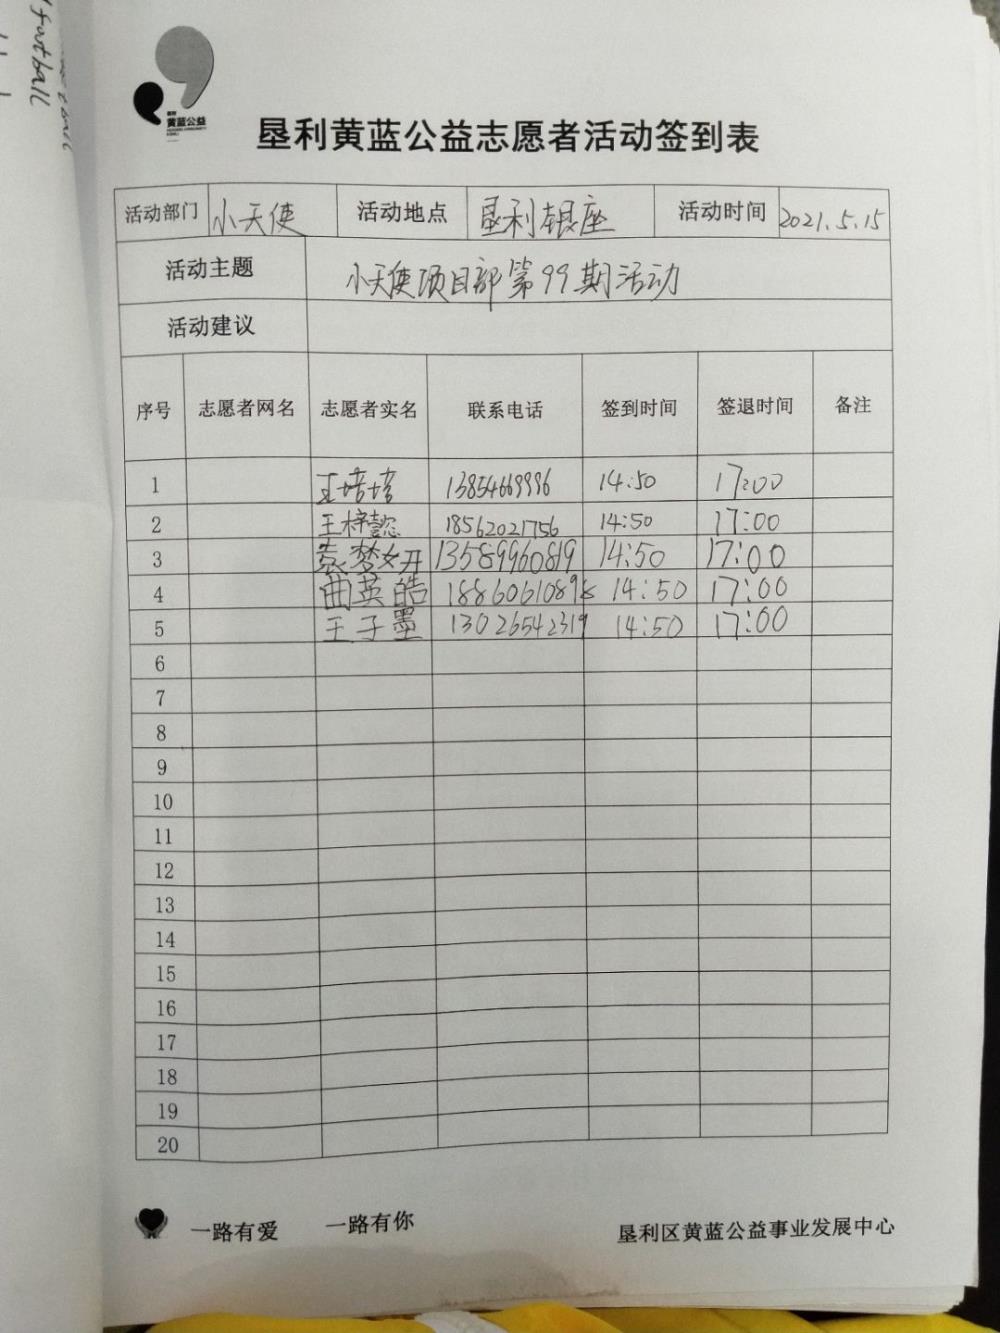 football
黄蓝公益
垦利黄蓝公益志愿者活动签到表
活动部门 小天使 活动地点 垦利银座 活动时间 2021.5.15
活动主题 小天使项目部第99期活动
活动建议
序号 志愿者网名 志愿者实名 联系电话 签到时间 签退时间 备注
1 王培培 13854669996 14:50 17:00
2 王梓懿 18562021756 14:50 17:00
3 袁梦妍 13589960819 14:50 17:00
4 曲英皓 18860610898 14:50 17:00
5 王子墨 13026542319 14:50 17:00
6
7
8
9
10
11
12
13
14
15
16
17
18
19
20
一路有爱 一路有你 垦利区黄蓝公益事业发展中心